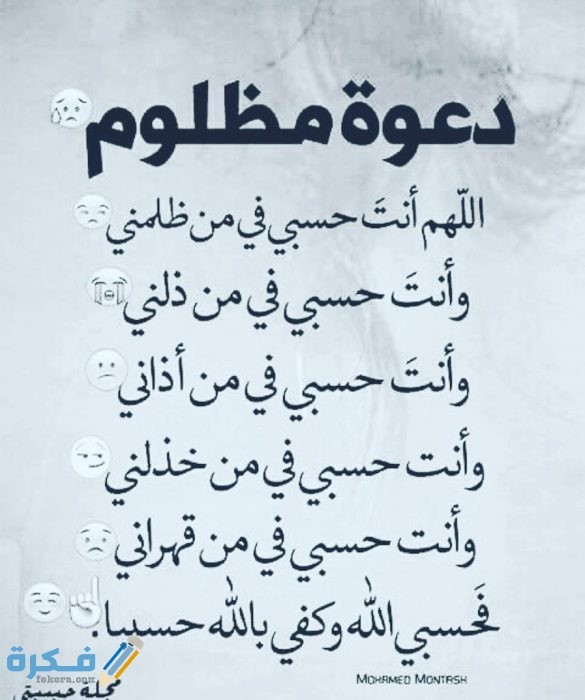 دعوة مظلوم
اللّهم أنتَ حسبي في من ظلمني
وأنتَ حسبي في من ذلني
وأنتَ حسبي في من أذاني
وأنت حسبي في من خذلني
وأنت حسبي في من قهراني
فَحسبي الله وكفي بالله حسيبا.
MOHAMED MONTASH
مجلة حبيبتي
فكرة
fekera.com